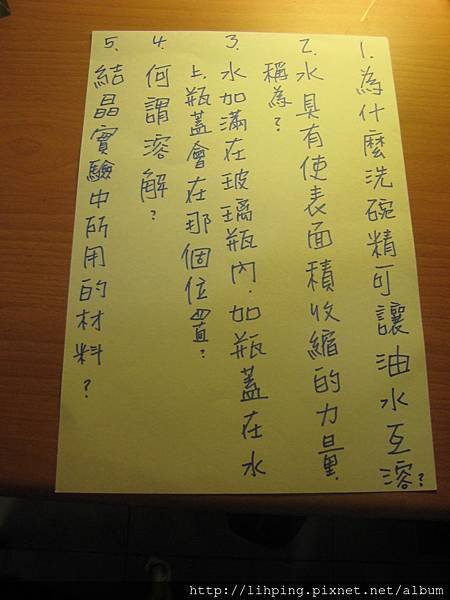 1.為什麼洗碗精可讓油水互溶?
2.水具有使表面積收縮的力量
稱為?
3.水加滿在玻璃瓶內.如瓶蓋在水
上瓶蓋會在那個位置?
4.何謂溶解?
5.結晶實驗中所用的材料?
http://lihping.pixnet.net/album